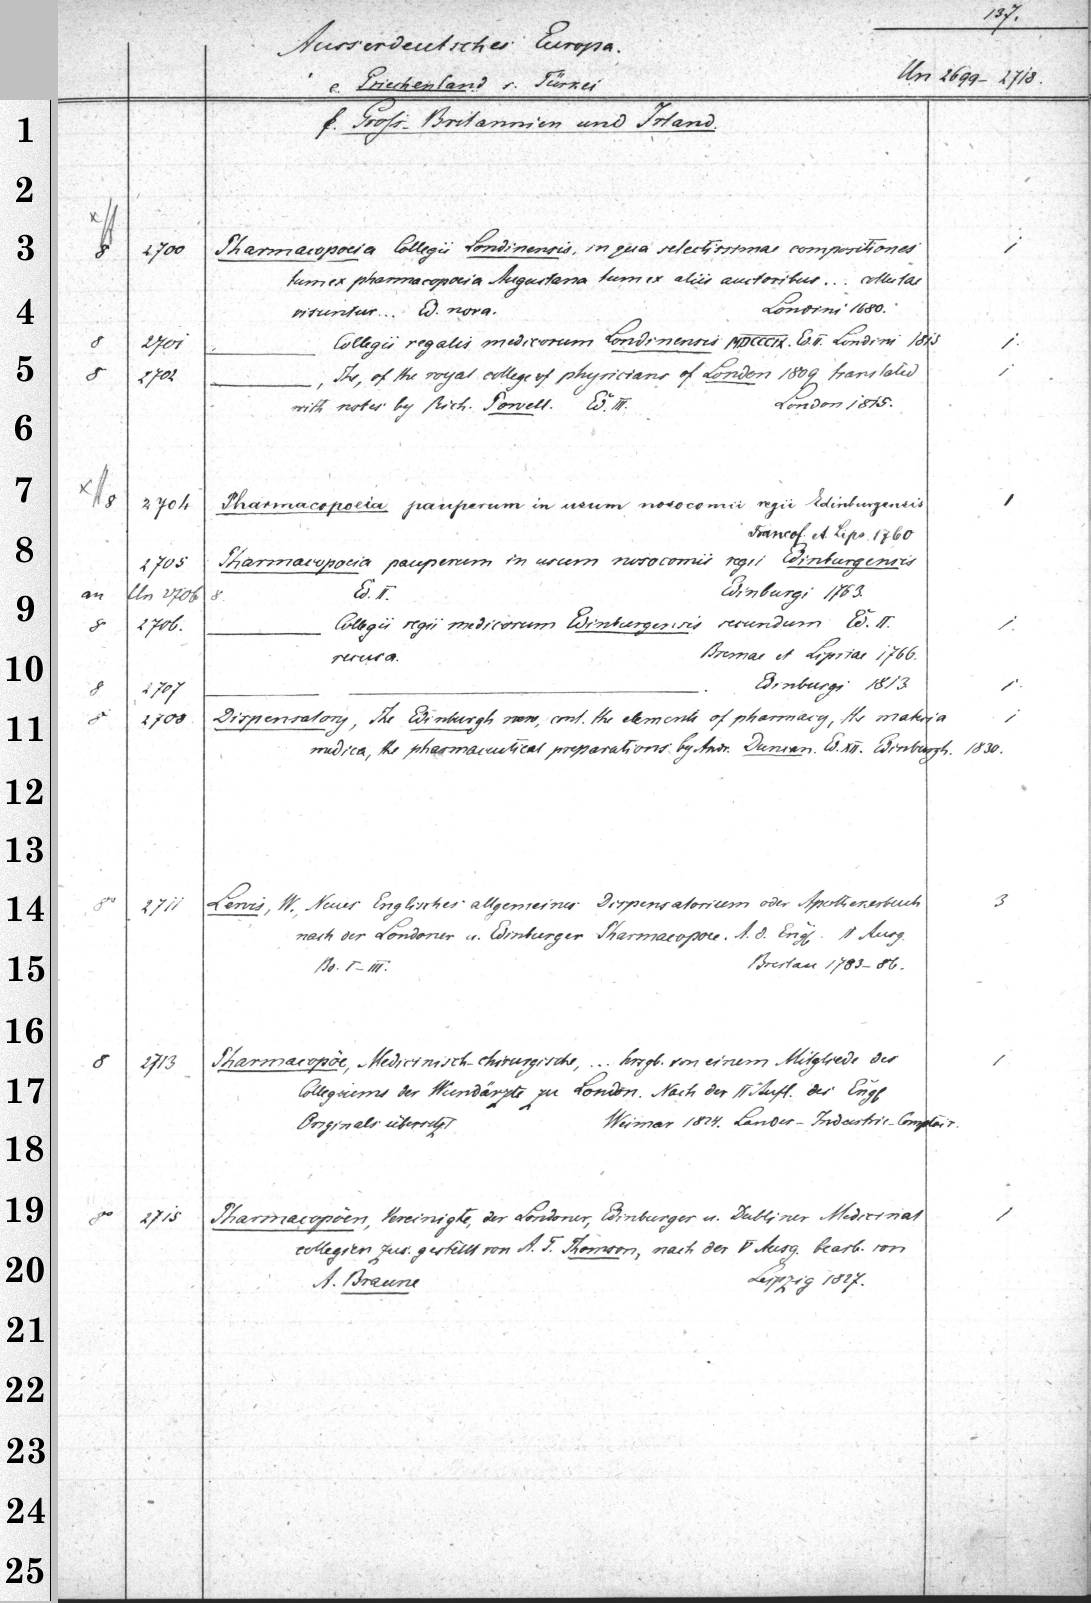 137.
Ausserdeutsches Europa.
Un 2699-2718.
e. Griechenland s. Türkei
f. Gross-Britannien und Irland.
8 2700 Pharmacopoeia Collegii Londinensis, in qua selectissimae compositiones 1
tum ex pharmacopoeia Augustana tum ex aliis auctoribus... collectae
visuntur... Ed. nova. Londini 1680.
8 2701 ——— Collegii regalis medicorum Londinensis MDCCCIX. Ed. II. Londini 1813 1.
8 2702 ———, The, of the royal college of physicians of London 1809 translated 1
with notes by Rich. Powell. Ed. III. London 1815.
8 2704 Pharmacopoeia pauperum in usum nosocomii regii Edinburgensis 1
Francof. et Lips. 1760
2705 Pharmacopoeia pauperum in usum nosocomii regii Edinburgensis
an Un 2706 8. Ed. II. Edinburgi 1763.
8 2706. ——— Collegii regii medicorum Edinburgensis secundum Ed. II. 1.
recusa. Bremae et Lipsiae 1766.
8 2707 ——— ———. Edinburgi 1813 1.
8 2708 Dispensatory, The Edinburgh new, cont. the elements of pharmacy, the materia 1
medica, the pharmaceutical preparations by Andr. Duncan. Ed. XII. Edinburgh. 1830.
8° 2711 Lewis, W., Neues Englisches allgemeines Dispensatorium oder Apothekerbuch 3
nach der Londoner u. Edinburger Pharmacopoe. A. d. Engl. II Ausg.
Bd. I-III. Breslau 1783-86.
8 2713 Pharmacopöe, Medicinisch-chirurgische, ... hrsgb. von einem Mitgliede des 1
Collegiums der Wundärzte zu London. Nach der II Aufl. des Engl
Originals übersetzt Weimar 1824. Landes-Industrie-Comptoir.
8° 2715 Pharmacopöen, Vereinigte, der Londoner, Edinburger u. Dubliner Medicinal 1
collegien zus. gestellt von A. T. Thomson, nach der V Ausg. bearb. von
A. Braune Leipzig 1827.
1
2
3
4
5
6
7
8
9
10
11
12
13
14
15
16
17
18
19
20
21
22
23
24
25